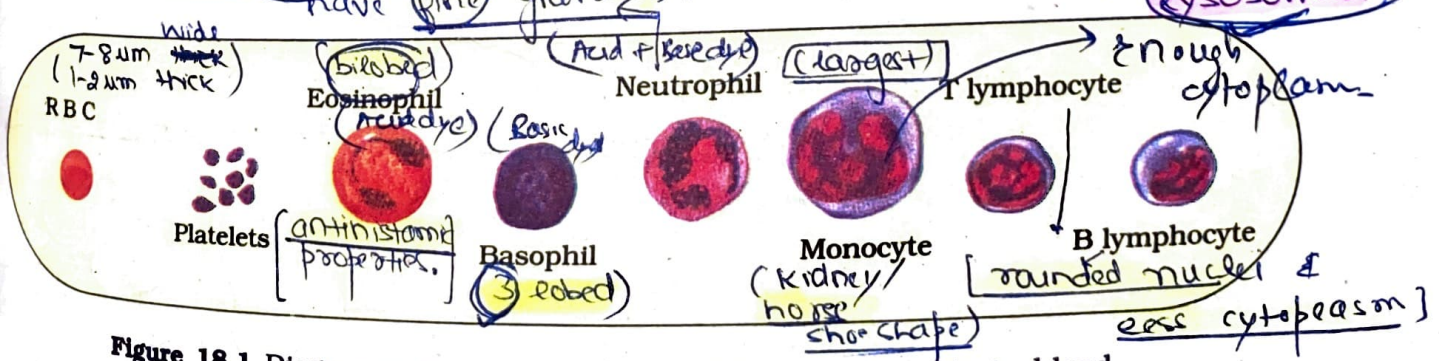 have fine
wide
(7-8 um thick
1-2 um thick)
RBC
(bilobed)
Eosinophil
(Acid dye)
(Basic dye)
(Acid + Base dye)
Neutrophil
(largest)
T lymphocyte
Enough
cytoplasm
Platelets
[antihistamic
properties.]
Basophil
(3 lobed)
Monocyte
(Kidney/
horse
shoe shape)
B lymphocyte
[rounded nuclei &
less cytoplasm]
Figure 18.1